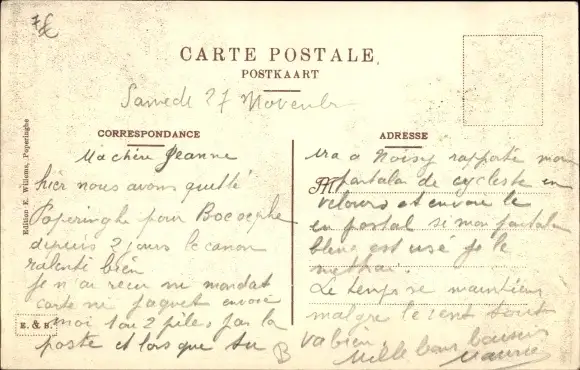 CARTE POSTALE
POSTKAART
Samedi 27 Novembr
CORRESPONDANCE
Ma chère Jeanne
hier nous avons quitté
Poperinghe pour
depuis 2 jours le canon
ralenti bien
je n'ai recu ni mandat
carte ni paquet envoie
moi 1 ou 2 piles par la
poste et lors que tu
E. & B.
B
Edition E. Willems, Poperinghe
ADRESSE
ira a Noisy rapporte mon
M
pantalon de cycliste en
velours et envoie le
en postal si mon pantalon
bleu est usé je le
mettrai.
Le temps se maintien
malgre le vent tout
va bien.
Mille bons baisers
Maurice